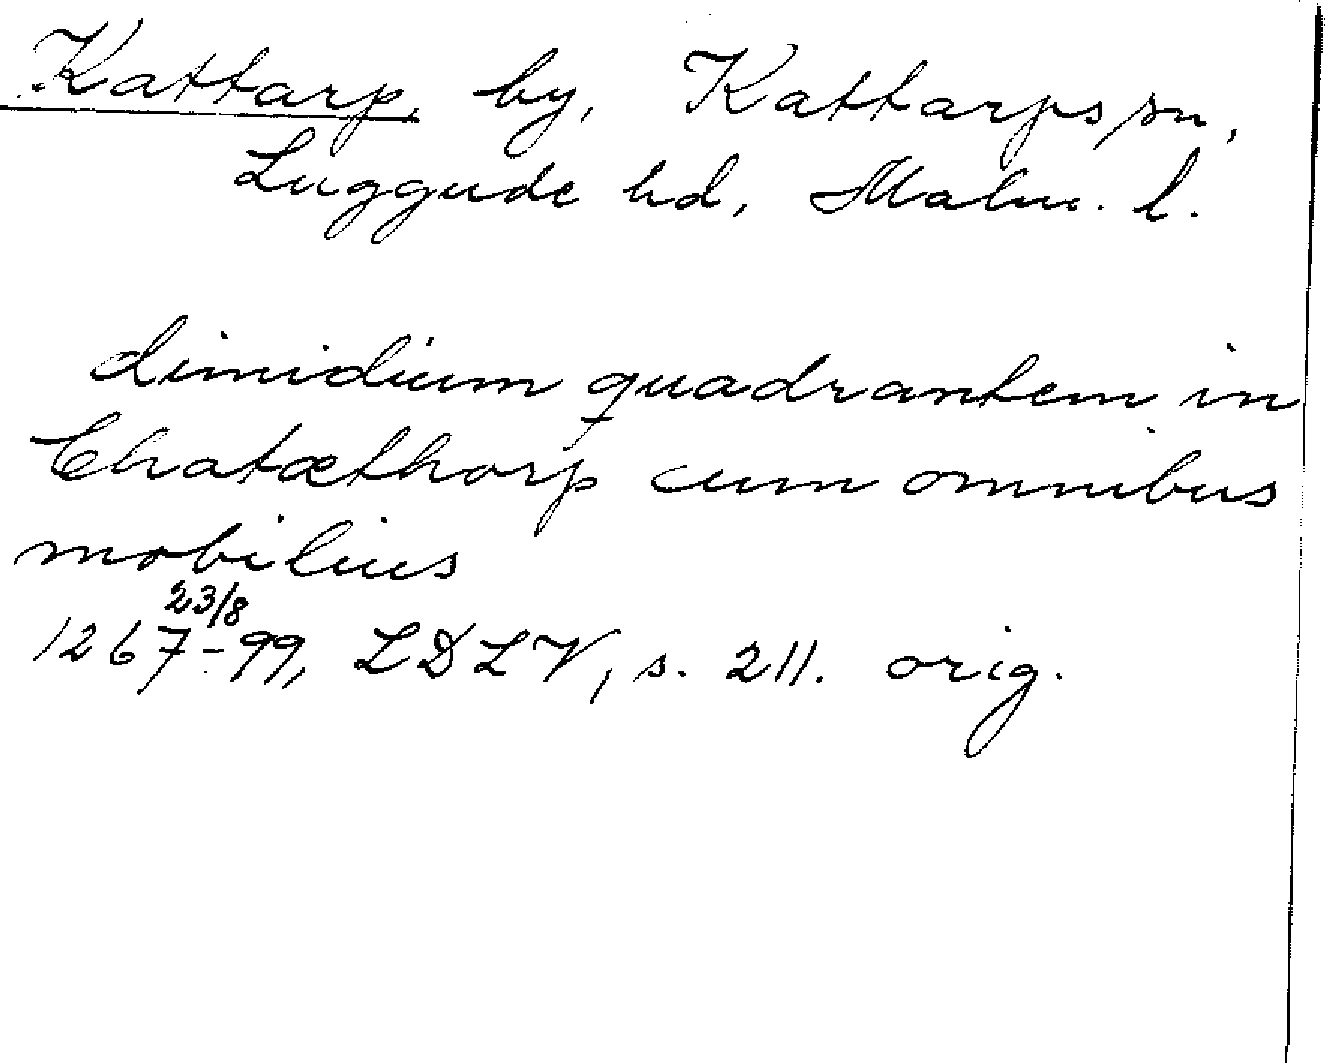 Kattarp, by, Kattarps sn,
Luggude hd, Malm. l.
dimidium quadrantem in
Chatæthorp cum omnibus
mobilius
23/8
1267-99, LDLV, s. 211. orig.